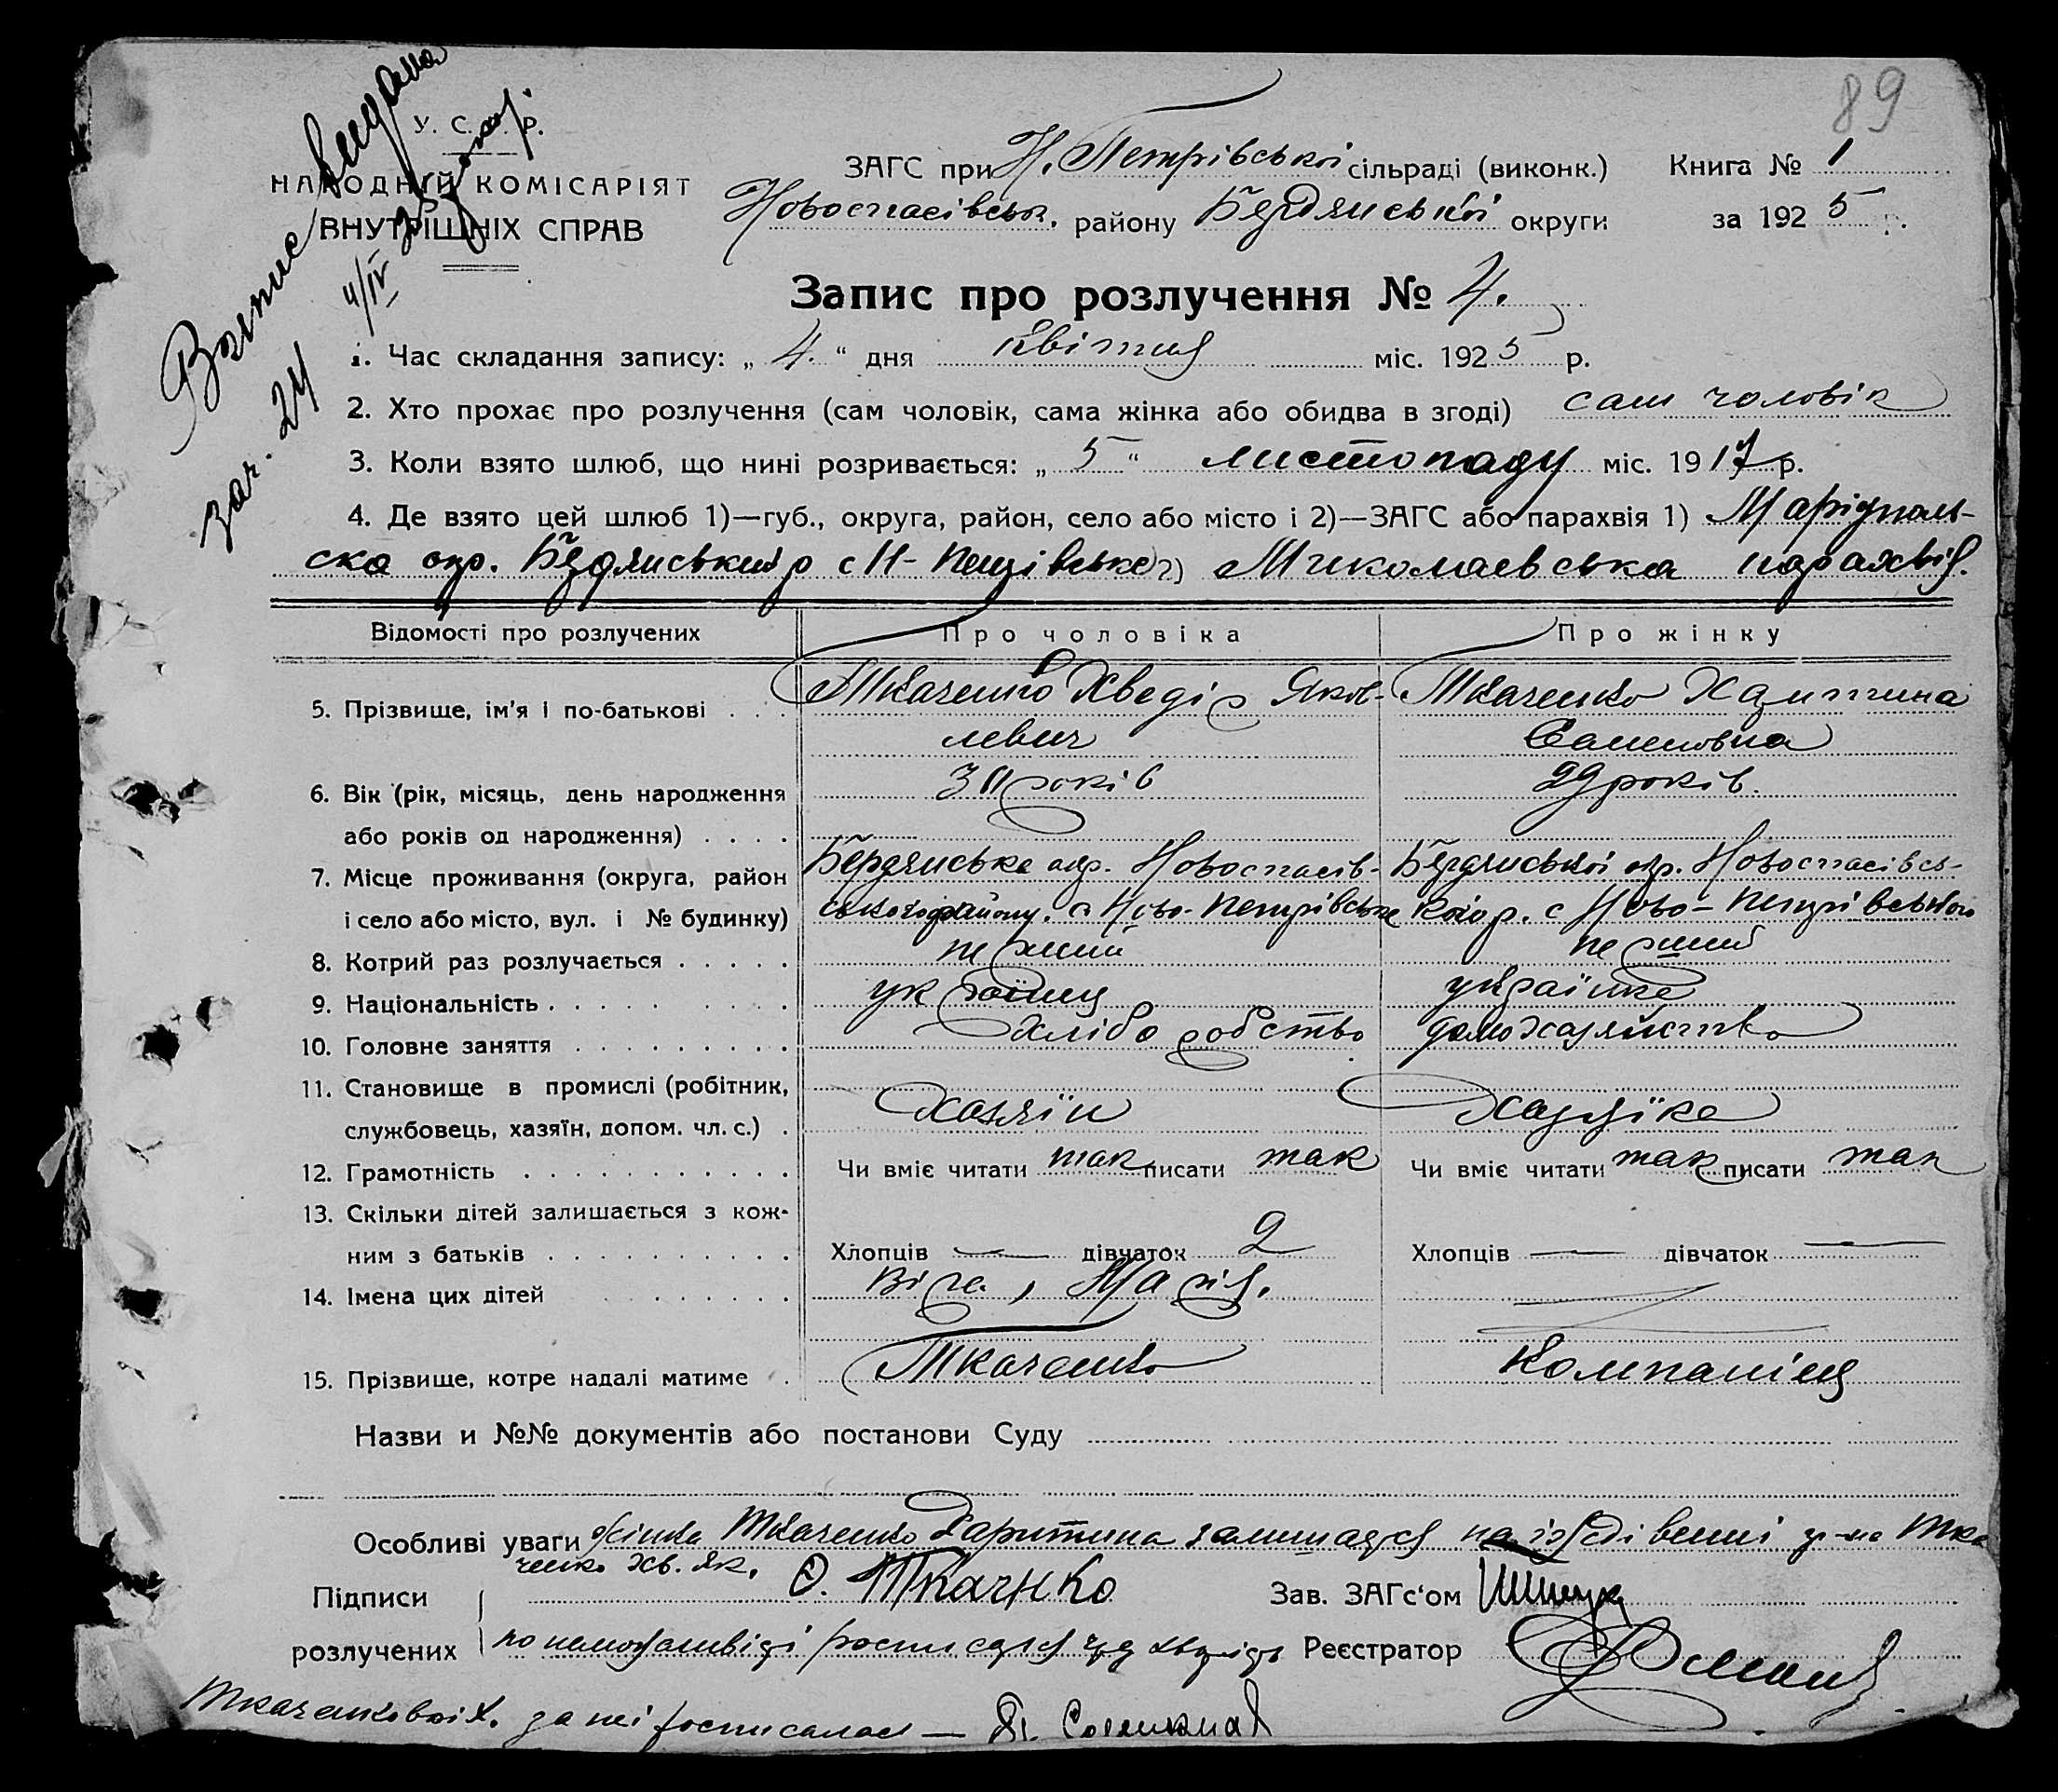 89
У. С. Р. Р.
НАРОДНІЙ КОМІСАРІЯТ
ВНУТРІШНІХ СПРАВ
Випис видана
4/IV
зач. 24
ЗАГС при Н. Петрівської сільраді (виконк.) Книга № 1
Новоспасівськ. району Бердянської округи за 1925 р.
Запис про розлучення № 4.
1. Час складання запису: „ 4. “ дня квітня міс. 1925 р.
2. Хто прохає про розлучення (сам чоловік, сама жінка або обидва в згоді) сам чоловік
3. Коли взято шлюб, що нині розривається: „ 5 “ листопаду міс. 1917 р.
4. Де взято цей шлюб 1)—губ., округа, район, село або місто і 2)—ЗАГС або парахвія 1) Маріуполь-
ска окр. Бердянський р с Н- Петрівське 2) Миколаевська парахвія.
Відомості про розлучених Про чоловіка Про жінку
5. Прізвище, ім'я і по-батькові . . . Ткаченко Хведір Яков- Ткаченко Харитина
левич Семеновна
6. Вік (рік, місяць, день народження років 29 років.
або років од народження) . . . .
7. Місце проживання (округа, район Бердянська окр. Новоспасів- Бердянської окр. Новоспасівсь-
і село або місто, вул. і № будинку) ського району. с Ново-Петрівське кого р. с Ново-Петрівської
8. Котрий раз розлучається . . . . . перший перший
9. Національність . . . . . . . українец українка
10. Головне заняття . . . . . . . . . Хліборобство домохазяйство
11. Становище в промислі (робітник,
службовець, хазяїн, допом. чл. с.) . Хазяїн Хазяїка
12. Грамотність . . . . . . . . . . . Чи вміє читати так писати так Чи вміє читати так писати так
13. Скільки дітей залишається з кож-
ним з батьків . . . . . . . . . . Хлопців — дівчаток 2 Хлопців — дівчаток —
14. Імена цих дітей . . . . . . . . Віра, Марія.
15. Прізвище, котре надалі матиме . Ткаченко Компаніец
Назви и №№ документів або постанови Суду
Особливі уваги жінка Ткаченко Харитина залишаеця на ізждівенні гр-на Тка
ченко Хв. Як.
Підписи Ѳ. Ткачнко Зав. ЗАГс‘ом
розлучених по неможливіді росписаця Реєстратор
Ткаченковоі Х. за неї росписалась —